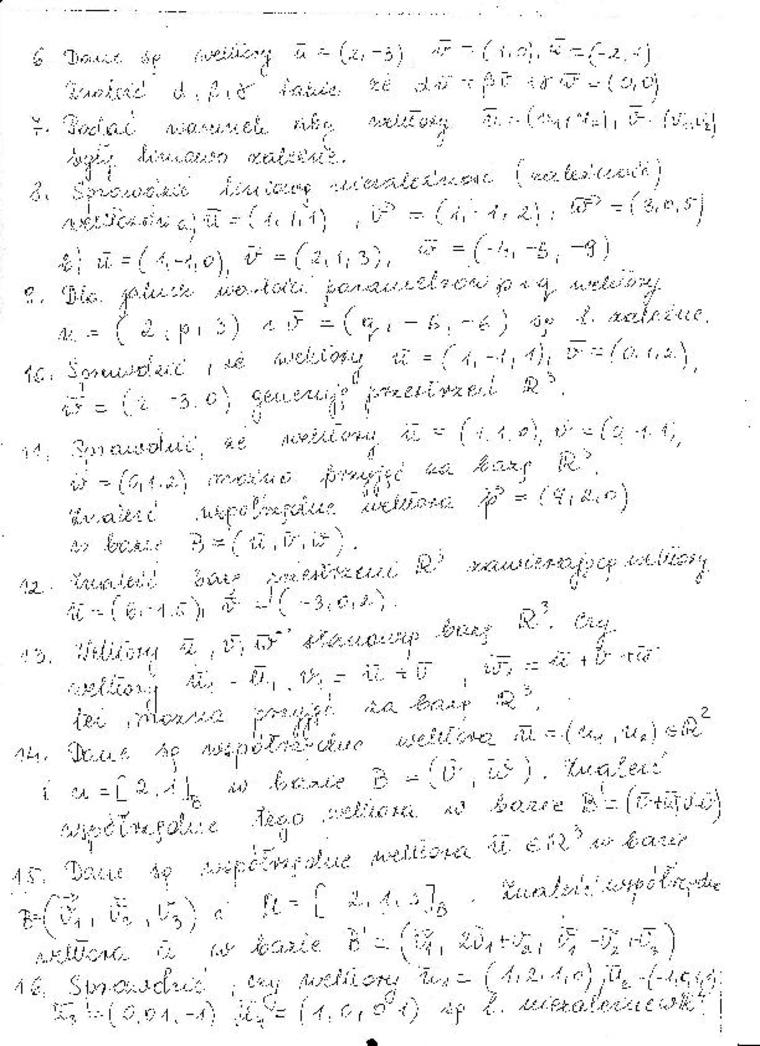 6. Dane są wektory ū = (2,-3) v̄ = (1,0), w̄ = (-2,1)
Znaleźć α, β, γ takie że αū + βv̄ + γw̄ = (0,0)
7. Podać warunek aby wektory ū = (u₁, u₂), v̄ = (v₁,v₂)
były liniowo zależne.
8. Sprawdzić liniową niezależność (zależność)
wektorów a) ū = (1,1,1), v̄ = (1,-1,2), w̄ = (3,0,5)
b) ū = (1,-1,0), v̄ = (2,1,3), w̄ = ( , -5, -9)
9. Dla jakich wartości parametrów p i q wektory
u = (2, p, 3) i v̄ = (q, , -6) są l. zależne.
10. Sprawdzić, że wektory ū = (1,-1,1), v̄ = (0,1,2),
w̄ = (2 -3,0) generują przestrzeń ℝ³.
11. Sprawdzić, że wektory ū = (1,1,0), v̄ = (0, 1,1),
w̄ = (0,1,2) można przyjąć za bazę ℝ³.
Znaleźć współrzędne wektora p̄ = ( , 2,0)
w bazie B = (ū, v̄, w̄).
12. Znaleźć bazę przestrzeni ℝ³ zawierającą wektory
ū = (6,-1,5), v̄ = (-3,0,2).
13. Wektory ū, v̄, w̄ stanowią bazę ℝ³. Czy
wektory ū₁ = ū, v̄₁ = ū + v̄, w̄₁ = ū + v̄ + w̄
też można przyjąć za bazę ℝ³.
14. Dane są współrzędne wektora ū = (u₁, u₂) ∈ ℝ²
i u = [2,1]_B w bazie B = (v̄, w̄). Znaleźć
współrzędne tego wektora w bazie B' =
15. Dane są współrzędne wektora ū ∈ ℝ³ w bazie
B = (v̄₁, v̄₂, v̄₃) i ū = [2,1,3]_B. Znaleźć współrzędne
wektora ū w bazie B' = (v̄₁, 2v̄₁+v̄₂, v̄₁-v̄₂+v̄₃)
16. Sprawdzić, czy wektory ū₁ = (1,2,1,0), ū₂ =
ū₃ = (0,0,1,-1) ū₄ = (1,0,0,1) są l. niezależne w